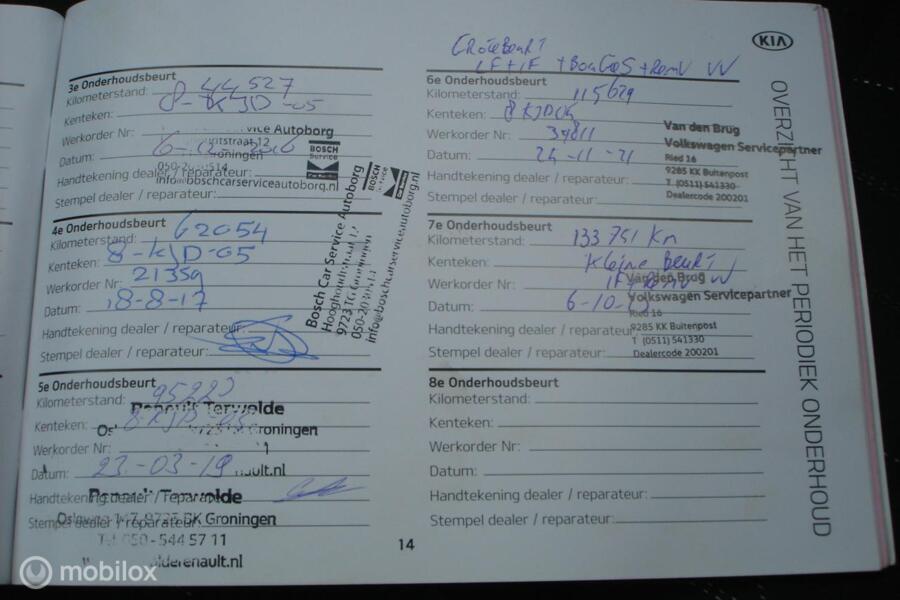 3e Onderhoudsbeurt
Kilometerstand: 44527
Kenteken: 8-KJD-05
Werkorder Nr: vice Autoborg
Datum:
Groningen
Handtekening dealer / reparateur:
Stempel dealer / reparateur: info@boschcarserviceautoborg.nl
BOSCH
Service
4e Onderhoudsbeurt
Kilometerstand: 62054
Kenteken: 8-KJD-05
Werkorder Nr: 21359
Datum: 18-8-17
Handtekening dealer / reparateur:
Stempel dealer / reparateur:
Bosch Car Service Autoborg
9723 TG Groningen
info@boschcarserviceautoborg.nl
BOSCH
5e Onderhoudsbeurt
Kilometerstand: 95223
Renault Terwolde
Kenteken: 8KJD-05
Groningen
Werkorder Nr:
Datum: 23-03-19
Handtekening dealer / reparateur:
Renault Terwolde
Stempel dealer / reparateur:
9723 BK Groningen
Tel. 050-544 57 11
14
KIA
OVERZICHT VAN HET PERIODIEK ONDERHOUD
Grote Beurt
LF + IF + Bougies + Remv VV
6e Onderhoudsbeurt
Kilometerstand: 115629
Kenteken: 8KJD05
Werkorder Nr: 39811
Datum: 24-11-21
Handtekening dealer / reparateur:
Stempel dealer / reparateur:
Van den Brug
Volkswagen Servicepartner
Ried 16
9285 KK Buitenpost
T. (0511) 541330
Dealercode 200201
7e Onderhoudsbeurt
Kilometerstand: 133751 Km
Kenteken: Kleine Beurt
Werkorder Nr:
Datum: 6-10-
Handtekening dealer / reparateur:
Stempel dealer / reparateur:
Van den Brug
Volkswagen Servicepartner
Ried 16
9285 KK Buitenpost
T (0511) 541330
Dealercode 200201
8e Onderhoudsbeurt
Kilometerstand:
Kenteken:
Werkorder Nr:
Datum:
Handtekening dealer / reparateur:
Stempel dealer / reparateur:
mobilox